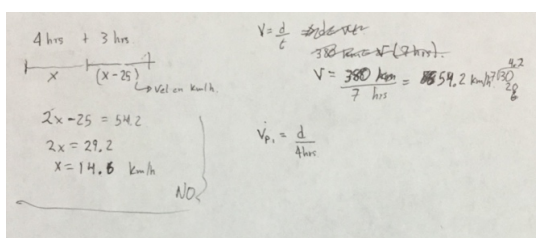 4 hrs + 3 hrs
x (x-25)
→ Vel en km/h.
2x - 25 = 54.2
2x = 29.2
x = 14.6 km/h
NO
V = d/t
380 km = V (7hrs).
V = 380 km / 7 hrs = 54.2 km/h
Vp₁ = d / 4hrs